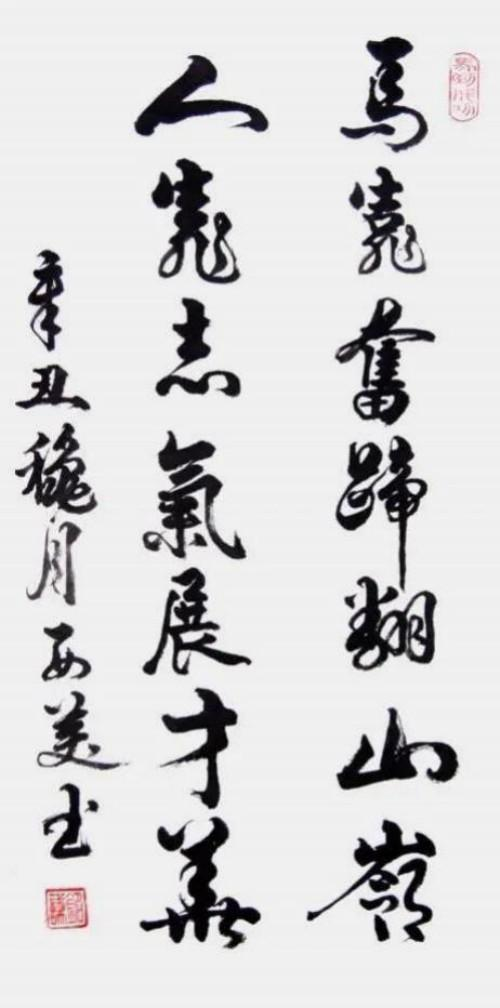 馬靠奮蹄翻山嶺
人靠志氣展才華
辛丑穐月 美书